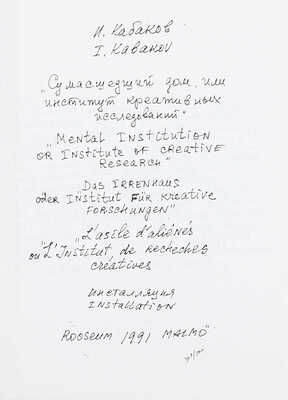 И. Кабаков
I. Kabakov
„Сумасшедший дом, или
институт креативных
исследований"
„Mental Institution
or Institute of creative
Research"
Das Irrenhaus
oder Institut für kreative
Forschungen"
„L'asile d'aliénés
ou L'Institut de recheches
créatives
инсталляция
Installation
Rooseum 1991 Malmö